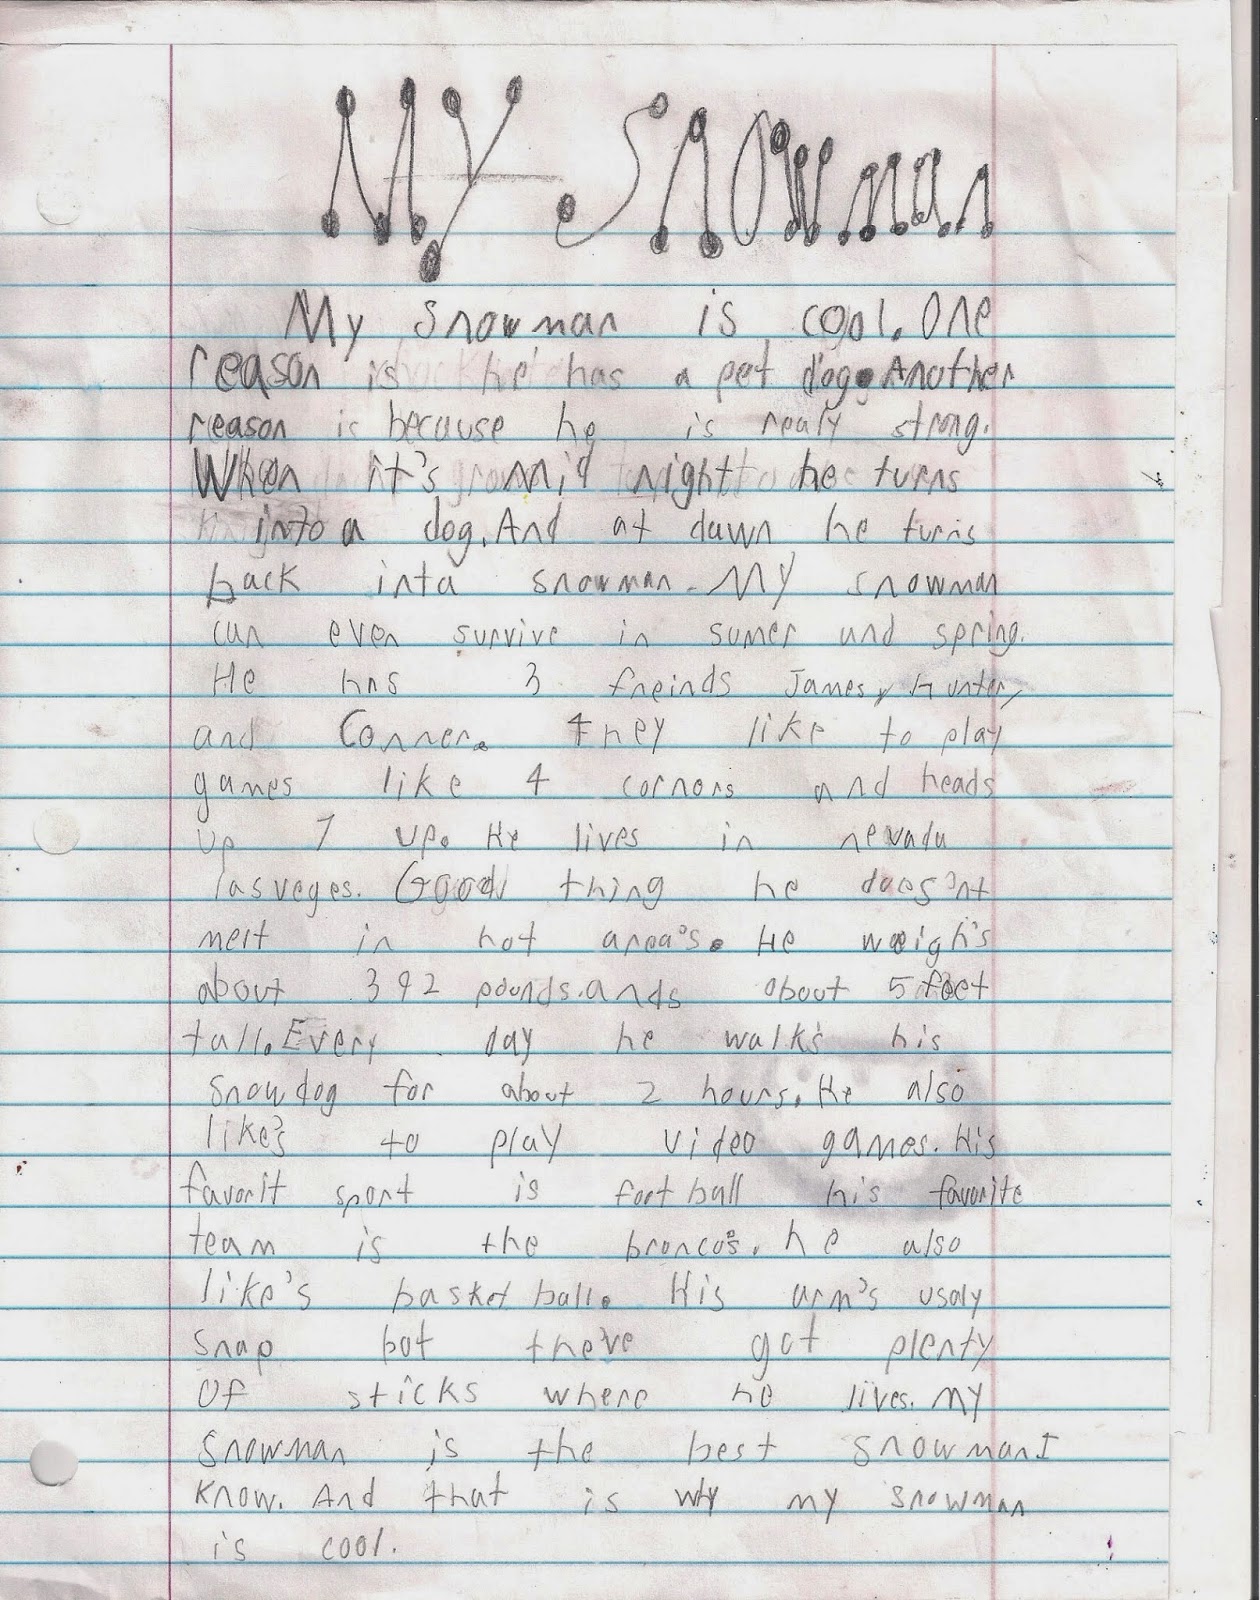 My Snowman
My snowman is cool. One
reason is he has a pet dog. Another
reason is because he is realy strong.
When it's mid night he turns
into a dog. And at dawn he turns
back inta snowman. My snowman
can even survive in sumer and spring.
He has 3 freinds James, Hunter,
and Conner. they like to play
games like 4 corners and heads
up 7 up. He lives in nevada
lasveges. Good thing he does'nt
melt in hot area's. He weigh's
about 392 pounds. ands about 5 feet
tall. Every day he walk's his
snowdog for about 2 hours. He also
like's to play video games. His
favorit sport is foot ball his favorite
team is the bronco's. he also
like's basket ball. His arm's usaly
snap but the've got plenty
of sticks where he lives. My
snowman is the best snowman I
know. And that is why my snowman
is cool.